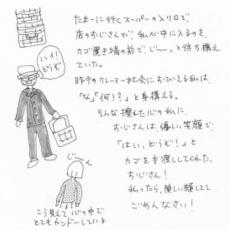 たまーに行くスーパーの入り口で
店のおじさんが、私が中に入るのを、
カゴ置き場の前で、じーっと待ち構え
ていた。
昨今のクレーマー社会におびえる私は、
「な」「何！？」と身構える。
そんな擦れた心の私に、
おじさんは優しい笑顔で、
「はい、どうぞ！」と
カゴを手渡ししてくれた。
おじさん！
私ったら、険しい顔して
ごめんなさい！
ハイ！
どうぞ
じーん
こう見えて心の中で
とてもカンドーしている